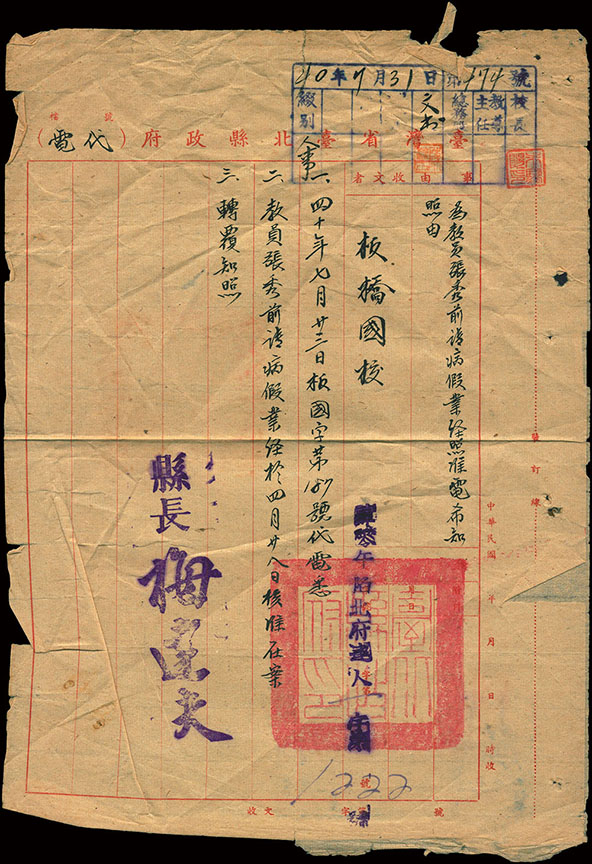 40年7月31日 第174號
校長
教導主任
文書
級別
人事
臺灣省臺北縣政府(代電)
事由
收文者
為教員張秀前請病假業經照准電希知
照由
板橋國校
一、四十年七月廿三日板國字第187號代電悉
二、教員張秀前請病假業經於四月廿八日核准在案
三、轉覆知照
縣長 梅達夫
北府達人字第
1222
號
中華民國 年 月 日 時收
裝訂線
收文 字 號
檔號